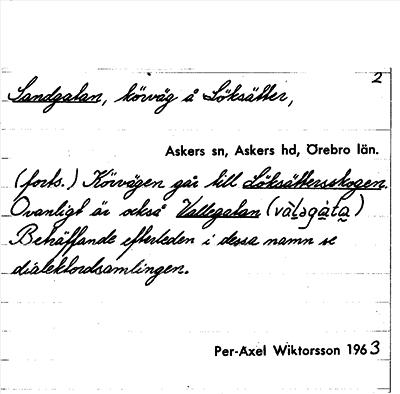 2
Sandgatan, körväg å Löksätter,
Askers sn, Askers hd, Örebro län.
(forts.) Körvägen går till Löksättersskogen.
Ovanligt är också Vallegatan (vàl̥əgàta̰)
Beträffande efterleden i dessa namn se
dialektordsamlingen.
Per-Axel Wiktorsson 1963